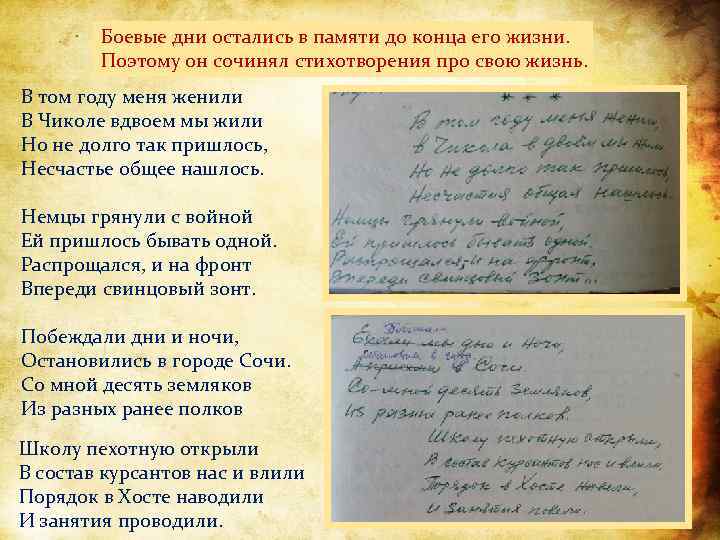 Боевые дни остались в памяти до конца его жизни.
Поэтому он сочинял стихотворения про свою жизнь.
В том году меня женили
В Чиколе вдвоем мы жили
Но не долго так пришлось,
Несчастье общее нашлось.
Немцы грянули с войной
Ей пришлось бывать одной.
Распрощался, и на фронт
Впереди свинцовый зонт.
Побеждали дни и ночи,
Остановились в городе Сочи.
Со мной десять земляков
Из разных ранее полков
Школу пехотную открыли
В состав курсантов нас и влили
Порядок в Хосте наводили
И занятия проводили.
* * *
В том году меня женили,
в Чикола в двоем мы жили
Но не долго так пришлось,
Несчастия общая нашлось.
Немцы грянули войной,
Ей пришлось бывать одной.
Распрощался, и на фронт,
Впереди свинцовый зонт.
мы дно и ночи,
в Сочи.
Со-мной десять Земляков,
из разных ранее полков.
Школу пехотную открыли,
В состав курсантов нас и влили.
Порядок в Хосте навели,
и Занятия повели.